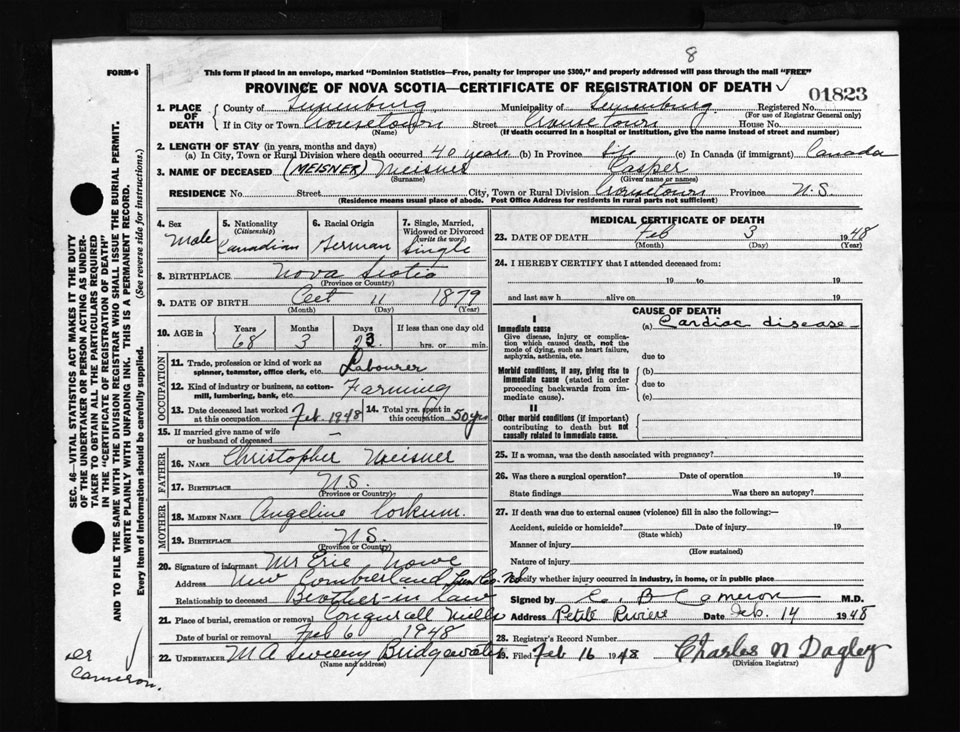 8
FORM-6 This form if placed in an envelope, marked "Dominion Statistics—Free, penalty for improper use $300," and properly addressed will pass through the mail "FREE"
PROVINCE OF NOVA SCOTIA—CERTIFICATE OF REGISTRATION OF DEATH
01823
1. PLACE OF DEATH
County of Lunenburg Municipality of Lunenburg Registered No.
(For use of Registrar General only)
If in City or Town Crousetown Street Crousetown House No.
(Name) (If death occurred in a hospital or institution, give the name instead of street and number)
2. LENGTH OF STAY (in years, months and days)
(a) In City, Town or Rural Division where death occurred 40 years (b) In Province life (c) In Canada (if immigrant) Canada
3. NAME OF DECEASED (MEISNER) Meisner Casper
(Surname) (Given name or names)
RESIDENCE No. Street City, Town or Rural Division Crousetown Province N.S
(Residence means usual place of abode. Post Office Address for residents in rural parts not sufficient)
4. Sex Male
5. Nationality (Citizenship) Canadian
6. Racial Origin German
7. Single, Married, Widowed or Divorced (write the word) Single
8. BIRTHPLACE Nova Scotia
(Province or Country)
9. DATE OF BIRTH Oct 11 1879
(Month) (Day) (Year)
10. AGE in Years 68 Months 3 Days 23 If less than one day old hrs. or min.
OCCUPATION
11. Trade, profession or kind of work as spinner, teamster, office clerk, etc. Labourer
12. Kind of industry or business, as cotton-mill, lumbering, bank, etc. Farming
13. Date deceased last worked at this occupation Feb. 1948 14. Total yrs. spent in this occupation 50 yrs
15. If married give name of wife or husband of deceased —
FATHER
16. NAME Christopher Meisner
17. BIRTHPLACE N.S.
(Province or Country)
MOTHER
18. MAIDEN NAME Angeline Corkum.
19. BIRTHPLACE N.S.
(Province or Country)
20. Signature of informant Mr Eric Nowe
Address New Comberland Lun Co. N.S
Relationship to deceased Brother-in law
21. Place of burial, cremation or removal Conquerall Mills
Date of burial or removal Feb 6 1948
22. UNDERTAKER M A Sweeny Bridgewater
(Name and address)
MEDICAL CERTIFICATE OF DEATH
23. DATE OF DEATH Feb 3 1948
(Month) (Day) (Year)
24. I HEREBY CERTIFY that I attended deceased from:
19 to 19
and last saw h alive on 19
CAUSE OF DEATH
I
Immediate cause (a) Cardiac disease
Give disease, injury or complication which caused death, not the mode of dying, such as heart failure, asphyxia, asthenia, etc. due to
Morbid conditions, if any, giving rise to immediate cause (stated in order proceeding backwards from immediate cause). (b)
due to
(c)
II
Other morbid conditions (if important) contributing to death but not causally related to immediate cause.
25. If a woman, was the death associated with pregnancy?
26. Was there a surgical operation? Date of operation 19
State findings Was there an autopsy?
27. If death was due to external causes (violence) fill in also the following:—
Accident, suicide or homicide? Date of injury 19
(State which)
Manner of injury
(How sustained)
Nature of injury
Specify whether injury occurred in industry, in home, or in public place
Signed by C. B Cameron M.D.
Address Petite Riviere Date Feb. 14 1948
28. Registrar's Record Number
29. Filed Feb 16 1948 Charles N Dagley
(Division Registrar)
SEC. 46—VITAL STATISTICS ACT MAKES IT THE DUTY
OF THE UNDERTAKER OR PERSON ACTING AS UNDER-
TAKER TO OBTAIN ALL THE PARTICULARS REQUIRED
IN THE "CERTIFICATE OF REGISTRATION OF DEATH"
AND TO FILE THE SAME WITH THE DIVISION REGISTRAR WHO SHALL ISSUE THE BURIAL PERMIT.
WRITE PLAINLY WITH UNFADING INK. THIS IS A PERMANENT RECORD.
Every item of information should be carefully supplied. (See reverse side for instructions.)
Dr
Cameron.